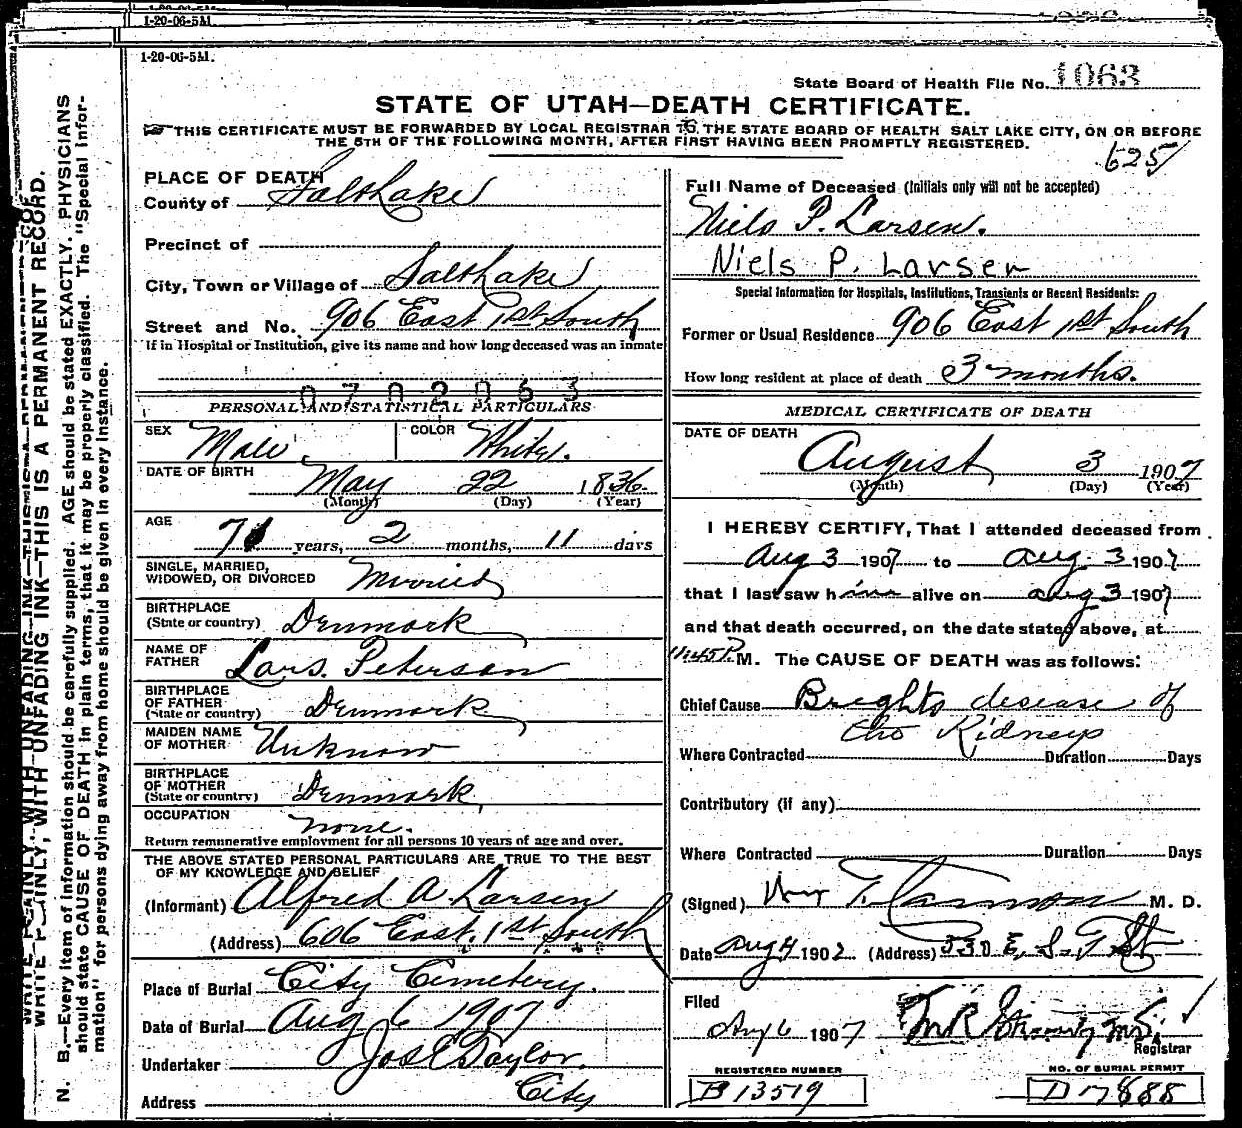 1-20-06-5M.
1-20-06-5M.
State Board of Health File No. 1063
STATE OF UTAH—DEATH CERTIFICATE.
THIS CERTIFICATE MUST BE FORWARDED BY LOCAL REGISTRAR TO THE STATE BOARD OF HEALTH SALT LAKE CITY, ON OR BEFORE
THE 5TH OF THE FOLLOWING MONTH, AFTER FIRST HAVING BEEN PROMPTLY REGISTERED.
625
WRITE PLAINLY, WITH UNFADING INK—THIS IS A PERMANENT RECORD.
N. B.—Every item of information should be carefully supplied. AGE should be stated EXACTLY. PHYSICIANS
should state CAUSE OF DEATH in plain terms, that it may be properly classified. The "Special Infor-
mation" for persons dying away from home should be given in every instance.
PLACE OF DEATH
County of Salt Lake
Precinct of
City, Town or Village of Salt Lake
Street and No. 906 East 1st South
If in Hospital or Institution, give its name and how long deceased was an inmate
0702063
PERSONAL AND STATISTICAL PARTICULARS
SEX Male. COLOR White.
DATE OF BIRTH May 22 1836.
(Month) (Day) (Year)
AGE 71 years, 2 months, 11 days
SINGLE, MARRIED,
WIDOWED, OR DIVORCED Married
BIRTHPLACE
(State or country) Denmark
NAME OF
FATHER Lars. Peterson
BIRTHPLACE
OF FATHER
(State or country) Denmark
MAIDEN NAME
OF MOTHER Unknow
BIRTHPLACE
OF MOTHER
(State or country) Denmark,
OCCUPATION none.
Return remunerative employment for all persons 10 years of age and over.
THE ABOVE STATED PERSONAL PARTICULARS ARE TRUE TO THE BEST
OF MY KNOWLEDGE AND BELIEF
(Informant) Alfred A. Larsen
(Address) 606 East 1st South
Place of Burial City Cemetery.
Date of Burial Aug 6 1907
Undertaker Jos E Taylor.
Address City
Full Name of Deceased (Initials only will not be accepted)
Niels P. Larsen.
Niels P. Larsen
Special Information for Hospitals, Institutions, Transients or Recent Residents:
Former or Usual Residence 906 East 1st South
How long resident at place of death 3 months.
MEDICAL CERTIFICATE OF DEATH
DATE OF DEATH
August 3 1907
(Month) (Day) (Year)
I HEREBY CERTIFY, That I attended deceased from
Aug 3 1907 to Aug. 3 1907
that I last saw him alive on Aug 3 1907
and that death occurred, on the date stated above, at
11.45 P. M. The CAUSE OF DEATH was as follows:
Chief Cause Brights desease of
the Kidneys
Where Contracted Duration Days
Contributory (if any)
Where Contracted Duration Days
(Signed) T. Cannon M. D.
Date Aug 4 1902 (Address) 330 E. So. T St
Filed
Aug 6 1907
Registrar
REGISTERED NUMBER
B 13579
NO. OF BURIAL PERMIT
D 17888